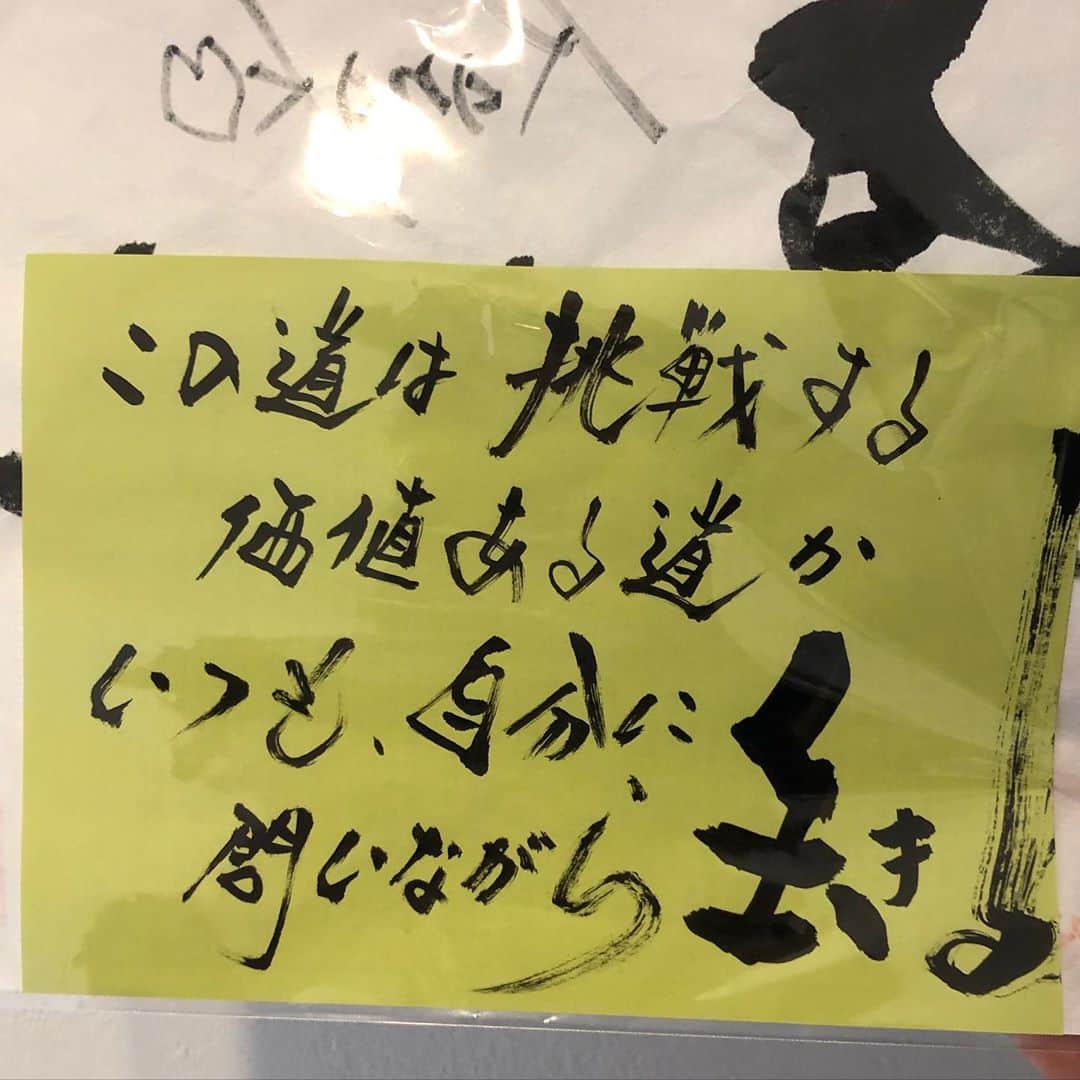 この道は挑戦する
価値ある道か
いつも、自分に、
問いながら生きる